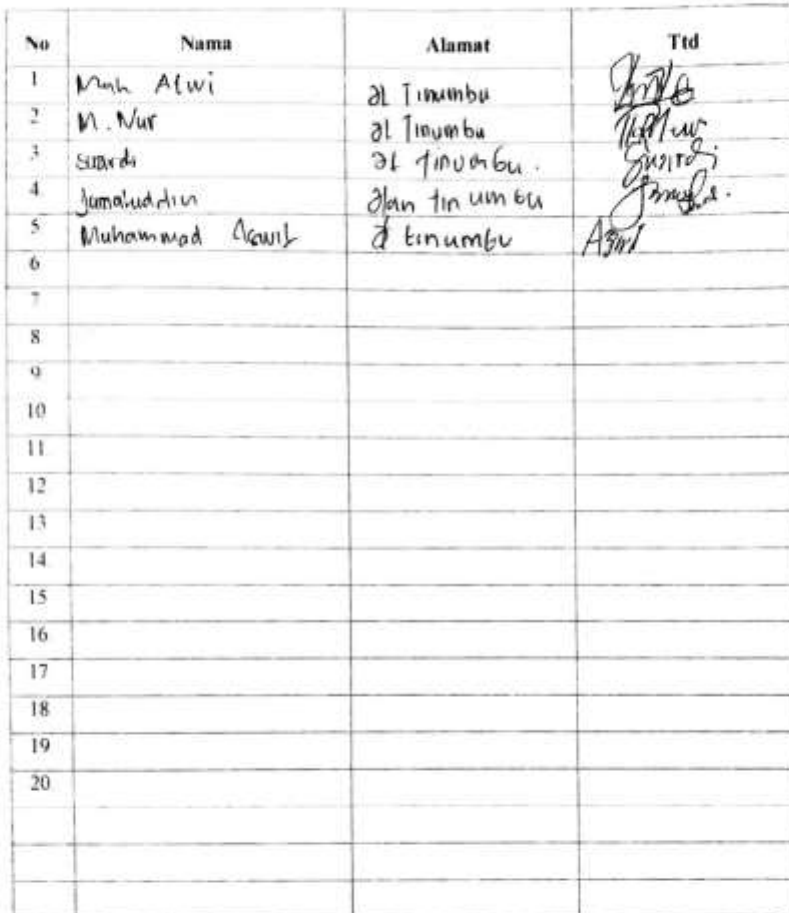 No Nama Alamat Ttd
1 Muh Alwi Jl Tinumbu
2 M. Nur Jl Tinumbu
3 Suardi Jl tinumbu. Suardi
4 Jamaluddin Jlan tinumbu
5 Muhammad Jl tinumbu
6
7
8
9
10
11
12
13
14
15
16
17
18
19
20